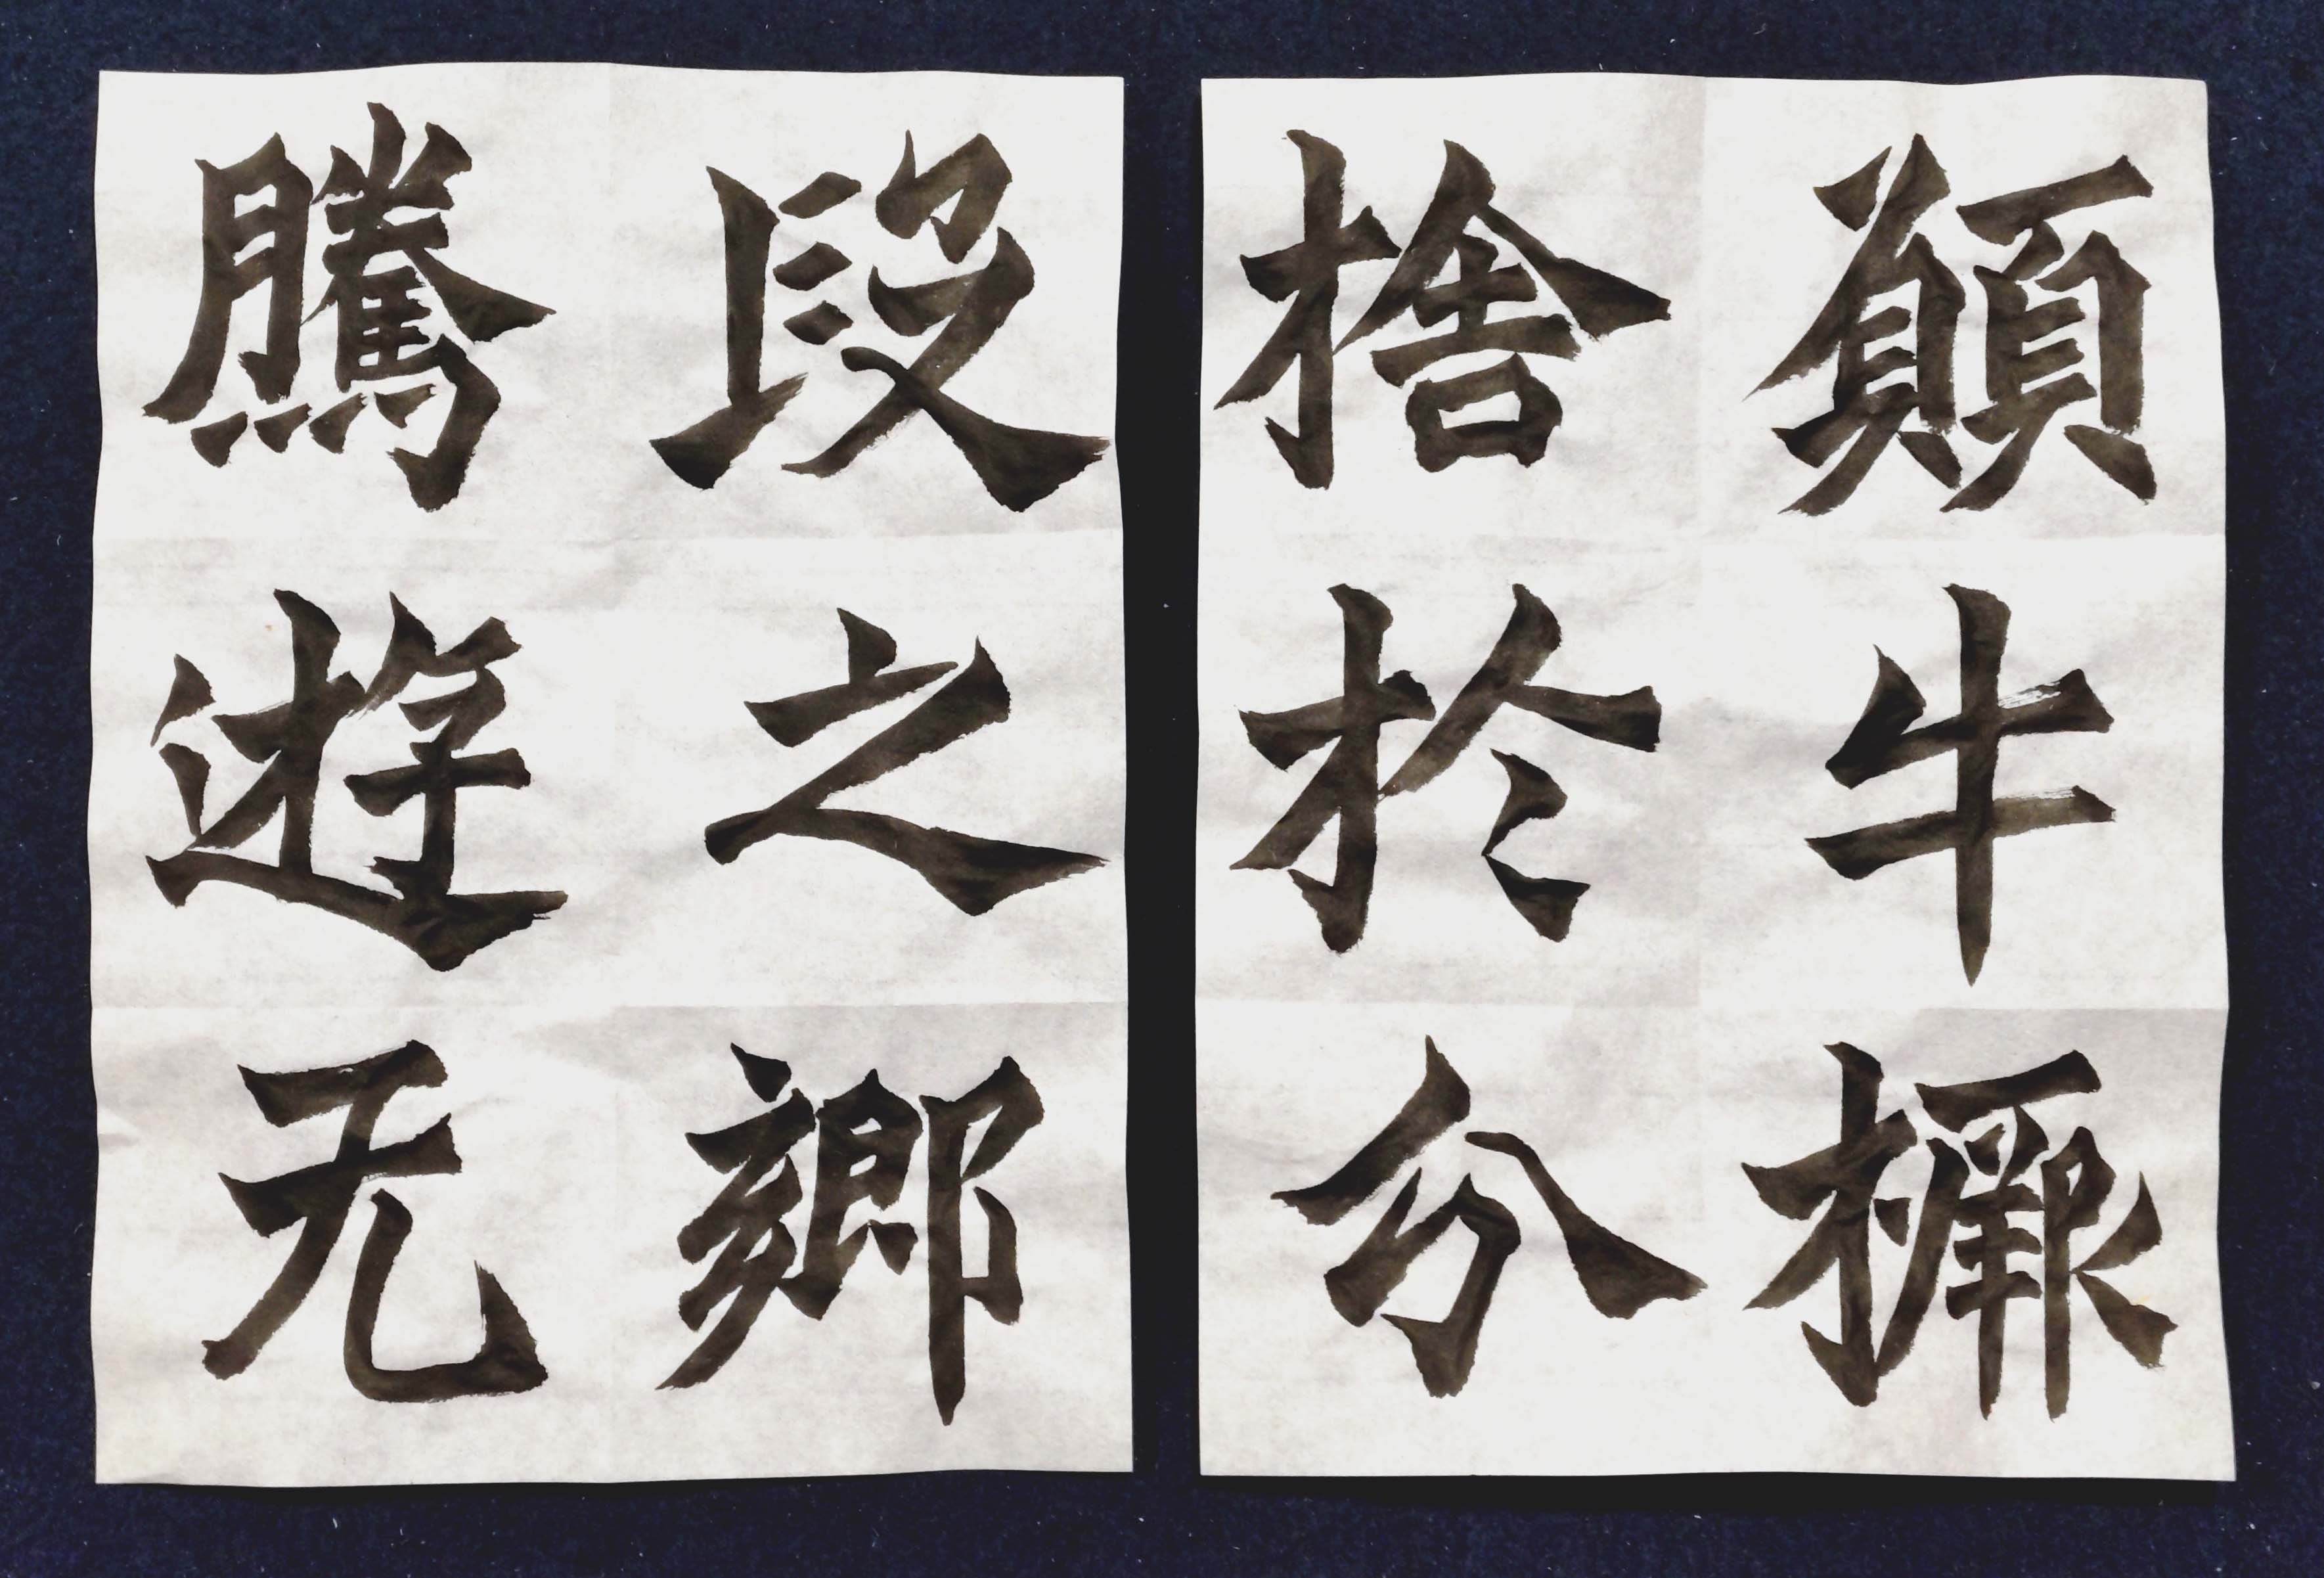 願牛橛
捨於分
段之鄉
騰遊无